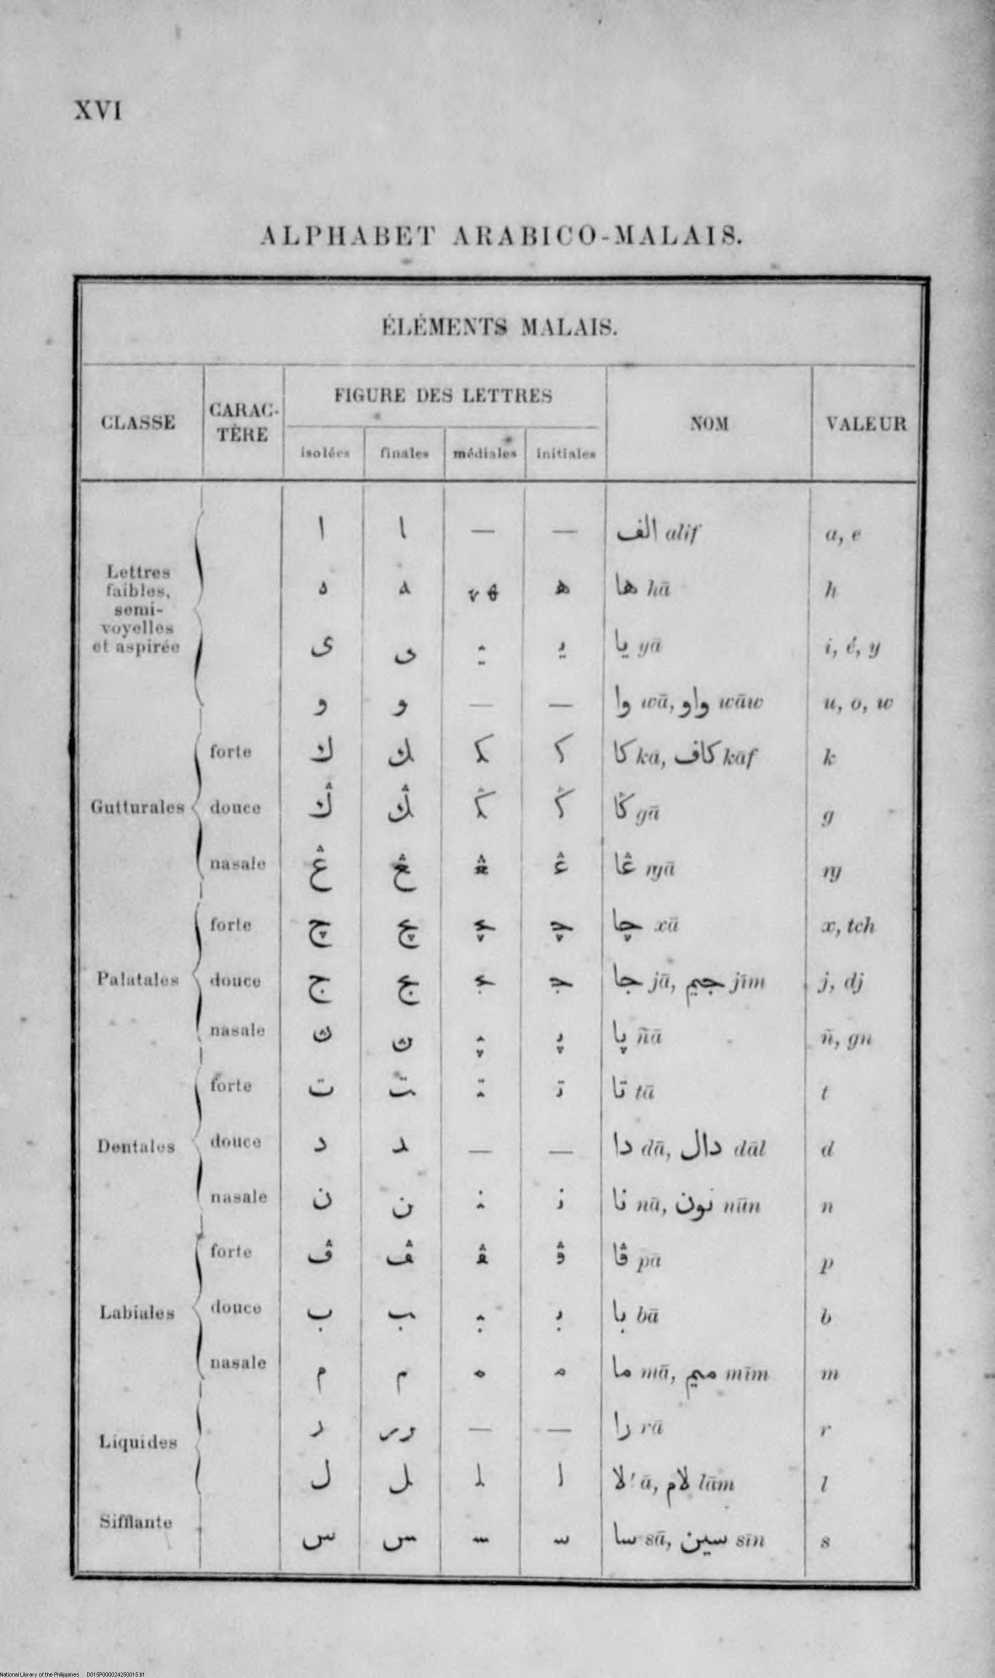 XVI
ALPHABET ARABICO-MALAIS.
ÉLÉMENTS MALAIS.
CLASSE CARAC-TÈRE FIGURE DES LETTRES NOM VALEUR
isolées finales médiales initiales
Lettres faibles, semi-voyelles et aspirée
ا ـا — — الف alif a, e
ه ـه ـهـ هـ ها hā h
ى ـى ـيـ يـ يا yā i, é, y
و ـو — — وا wā, واو wāw u, o, w
Gutturales
forte ك ـك ـكـ كـ كا kā, كاف kāf k
douce ڭ ـڭ ـڭـ ڭـ ڭا gā g
nasale ڠ ـڠ ـڠـ ڠـ ڠا ŋā ŋ
Palatales
forte چ ـچ ـچـ چـ چا xā x, tch
douce ج ـج ـجـ جـ جا jā, جيم jīm j, dj
nasale ڽ ـڽ ـڽـ ڽـ ڽا ñā ñ, gn
Dentales
forte ت ـت ـتـ تـ تا tā t
douce د ـد — — دا dā, دال dāl d
nasale ن ـن ـنـ نـ نا nā, نون nūn n
Labiales
forte ڤ ـڤ ـڤـ ڤـ ڤا pā p
douce ب ـب ـبـ بـ با bā b
nasale م ـم ـمـ مـ ما mā, ميم mīm m
Liquides
ر ـر — — را rā r
ل ـل ـلـ لـ لا lā, لام lām l
Sifflante س ـس ـسـ سـ سا sā, سين sīn s
National Library of the Philippines